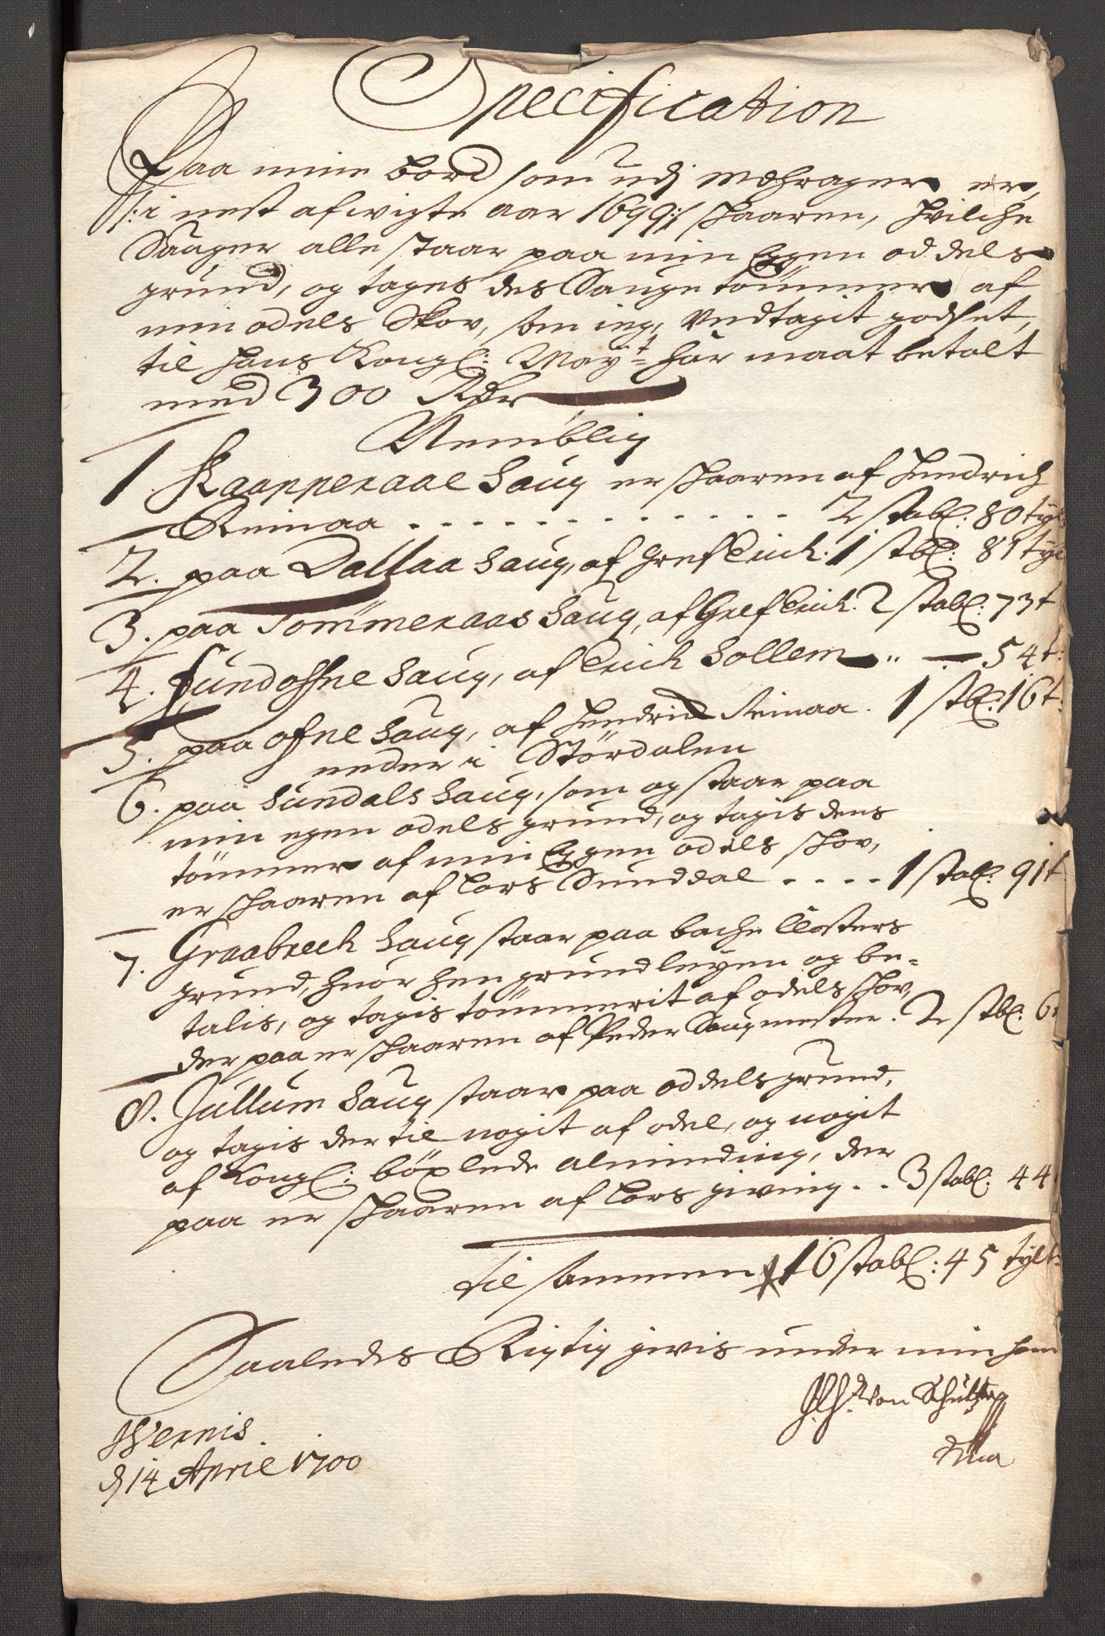 Specification
Paa mine bord som udj wehrager er,
/: i nest afwigte aar 1699 :/ skaaren, hvilche
Sauger alle staar paa min Eggen oddels
grund, og tages des Sauge tømmer af
min odels Skov, som ieg, Vndtagit godset,
til hans Kongl: Mayt: har maat betalt
med 300 Rdr
Nemblig
1 Kaapperaae Saug er skaaren af Hendrich
Reinaa . . . . . . . . . . 2 stabl: 80 tyl
2. paa Dallaa Saug, af Gref Erich: 1 stbl: 81 tyl
3. paa Tømmeraas Saug, af Gref Erich. 2 stabl: 73 t
4. fundossne Saug, af Erich Sollem . . 54 t:
5. paa ofne Saug, af Hendric Reinaa . 1 stbl: 16 t:
neder i Størdalen
6. paa Sundals Saug, som og staar paa
min egen odels grund, og tagis dens
tømmer af min Eggen odels skov,
er skaaren af Lars Sunddal . . . . 1 stabl: 91 t
7. Graabreck Saug staar paa bache Closters
grund, huor hen grundleyen og be-
talis, og tagis tømmerit af odels skov,
der paa er skaaren af Peder Saugmester . 2 stbl: 6
8. Jullum Saug staar paa oddels grund,
og tagis der til nogit af odel, og nogit
af Kongl: böxlede alminding, der
paa er skaaren af Lars giving . . 3 stabl: 44
til sammen 16 stabl: 45 tylt
Saaledes Rigtig givis under min han
von Schultz
Wernis
d 14 April 1700